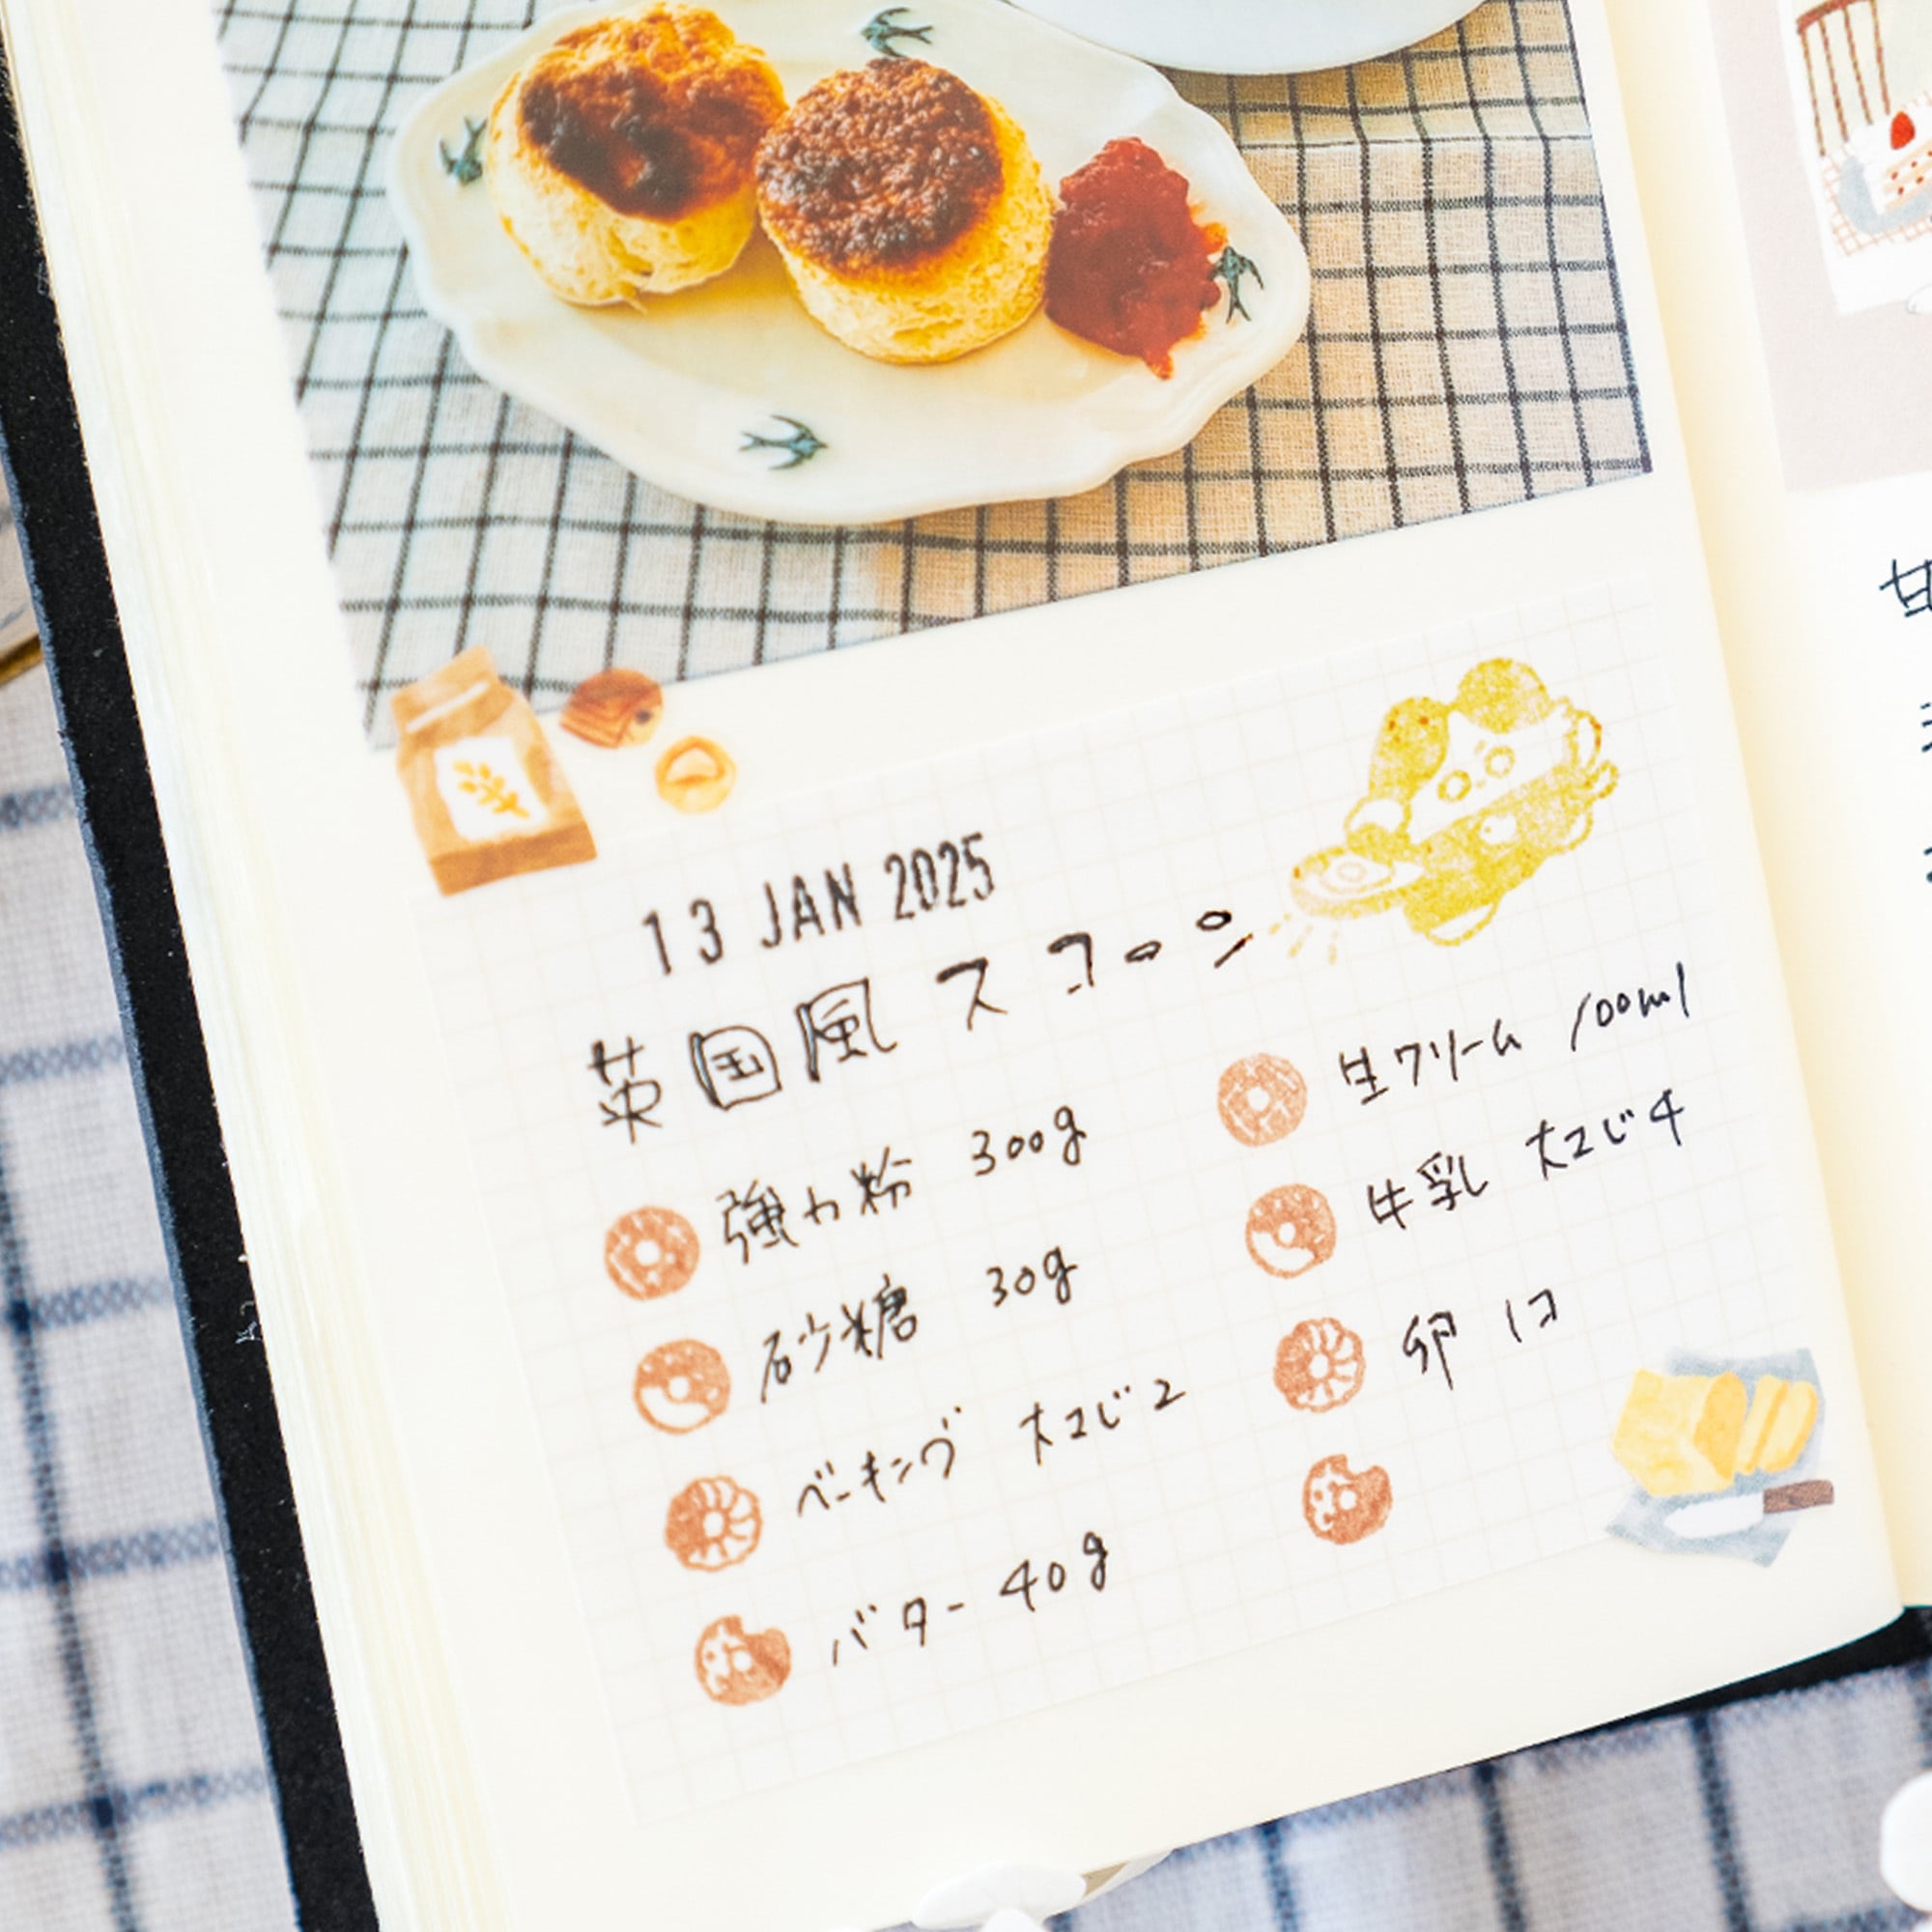 13 JAN 2025
英国風スコーン
強力粉 300g
砂糖 30g
ベーキング 大さじ2
バター 40g
生クリーム 100ml
牛乳 大さじ4
卵 1コ
甘